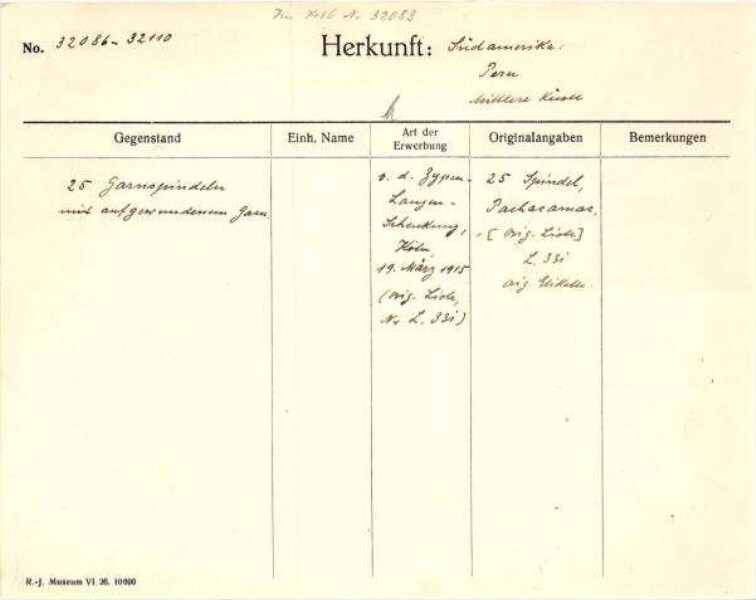 No. 32083
No. 32086-32110
Herkunft: Südamerika.
Peru
Mittlere Küste
Gegenstand
Einh. Name
Art der
Erwerbung
Originalangaben
Bemerkungen
25 Garnspindeln
mit aufgewundenem Garn.
v. d. Zypen-
Langen-
Schenkung,
Köln
19. März 1915
(orig. Liste,
No L. 33i)
25 Spindel,
Pachacamac,
[orig. Liste]
L. 33i
orig. Etikette.
R.-J. Museum VI. 26. 10000